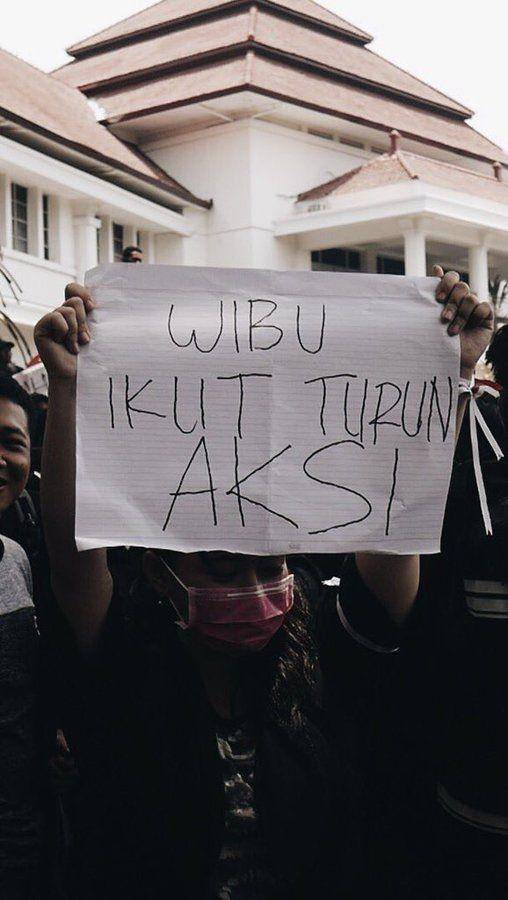 WIBU
IKUT TURUN
AKSI